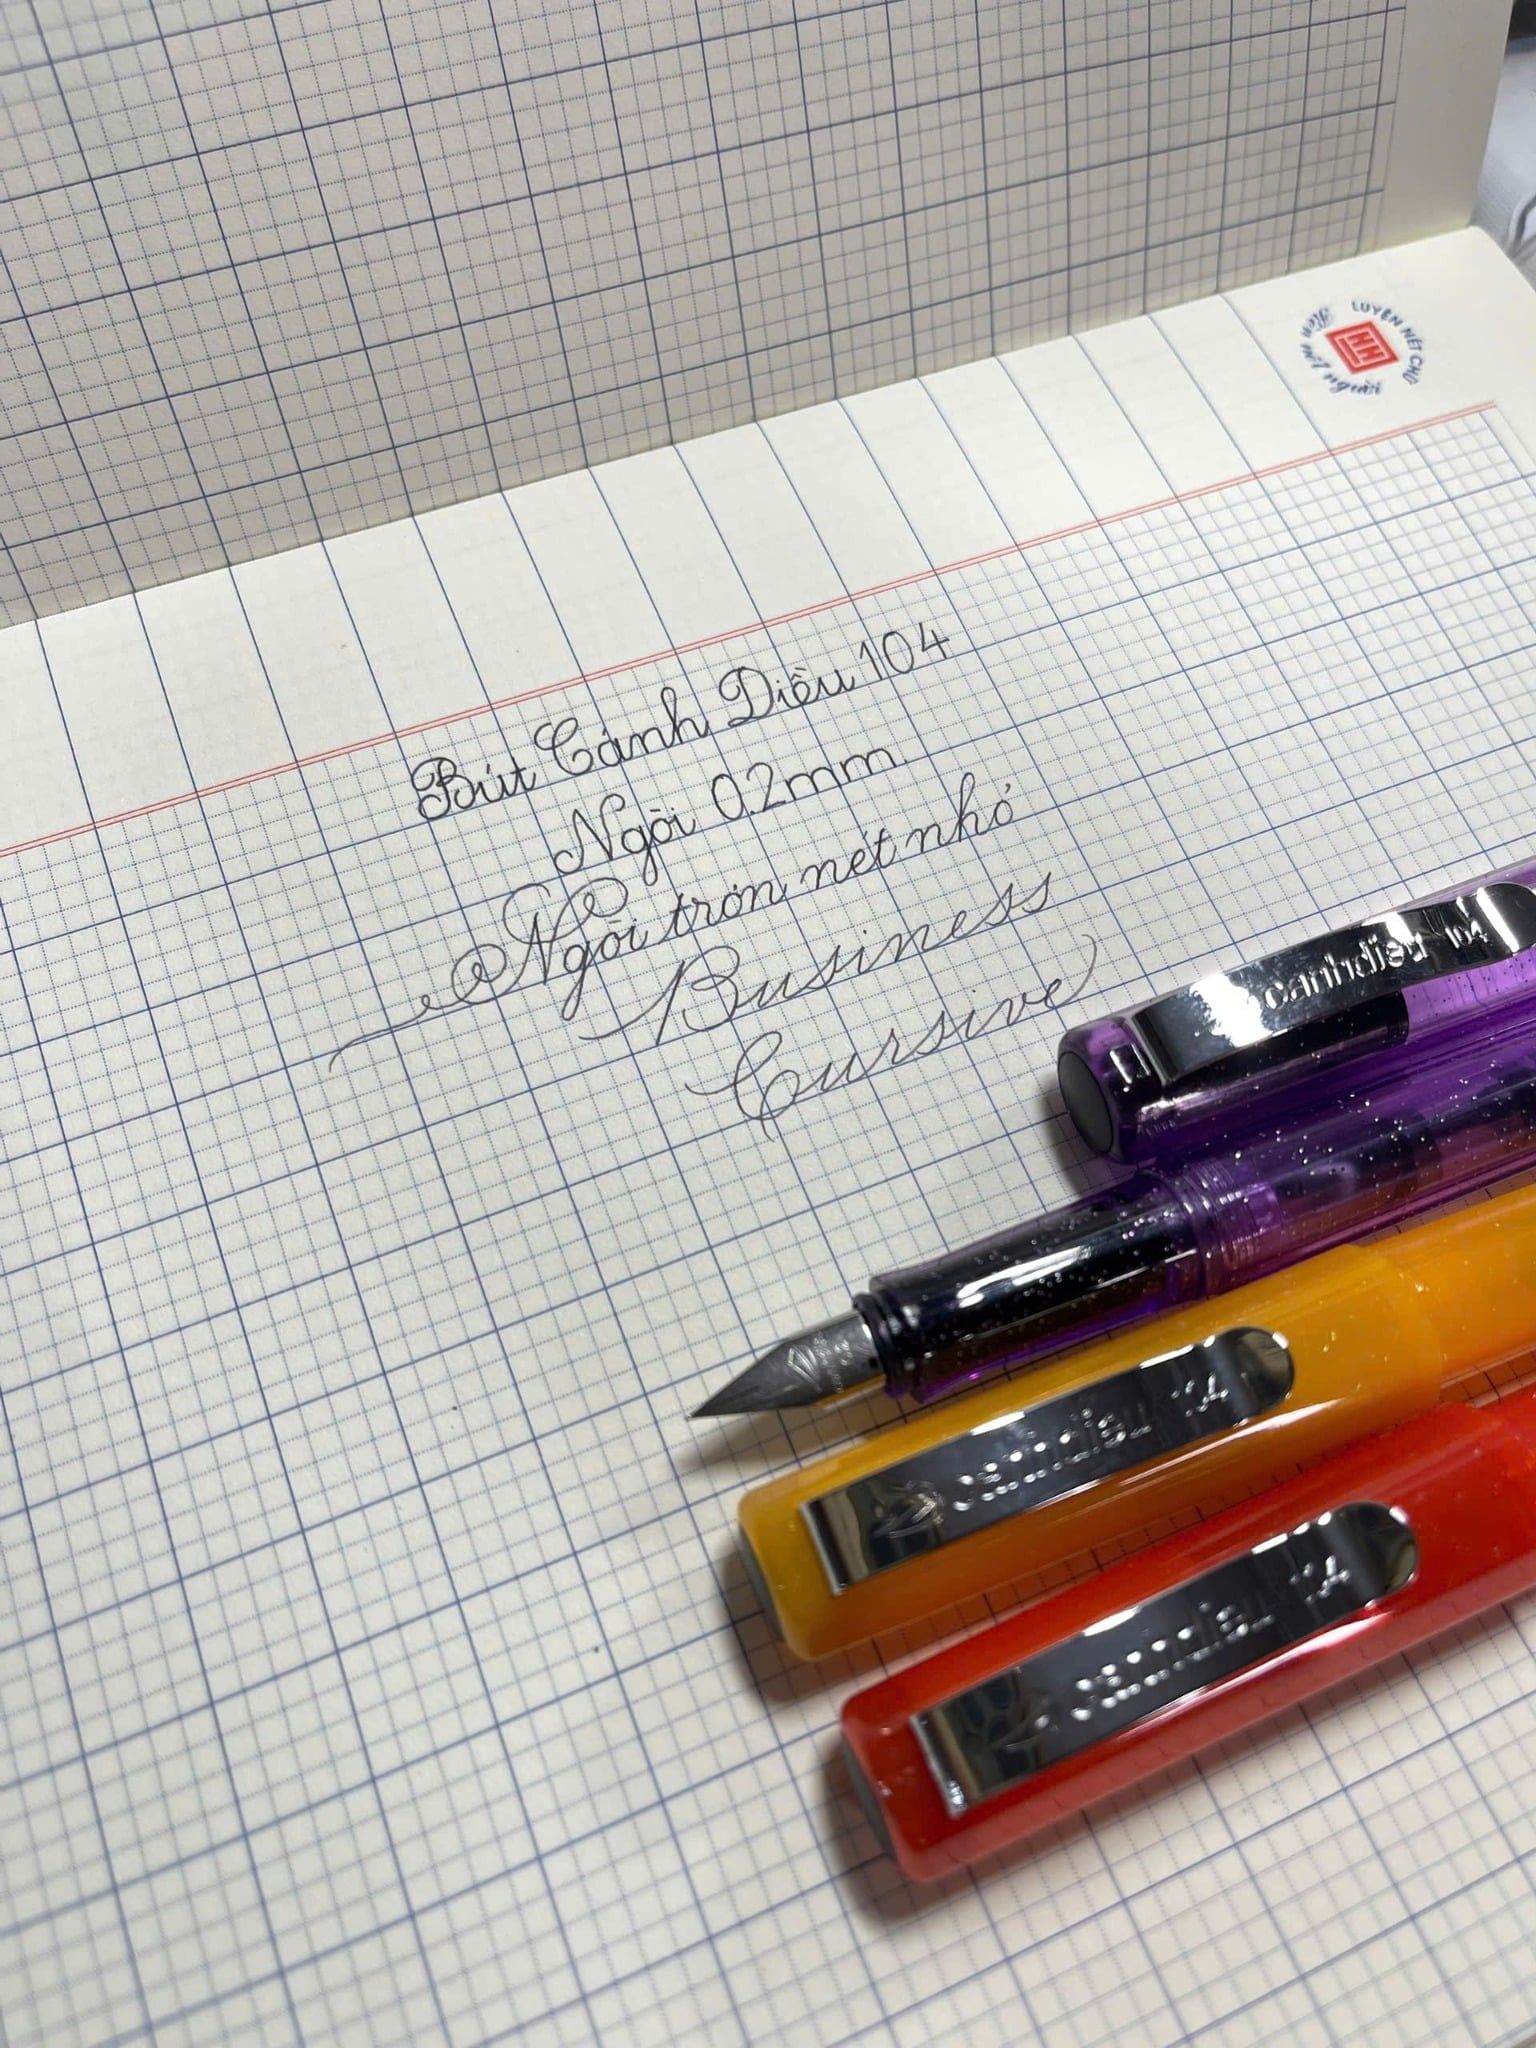 LUYỆN NÉT CHỮ
Rèn nết người
HH
Bút Cánh Diều 104
Ngòi 0.2mm
Ngòi trơn nét nhỏ
Business
Cursive
canhdieu 104
canhdieu
canhdieu